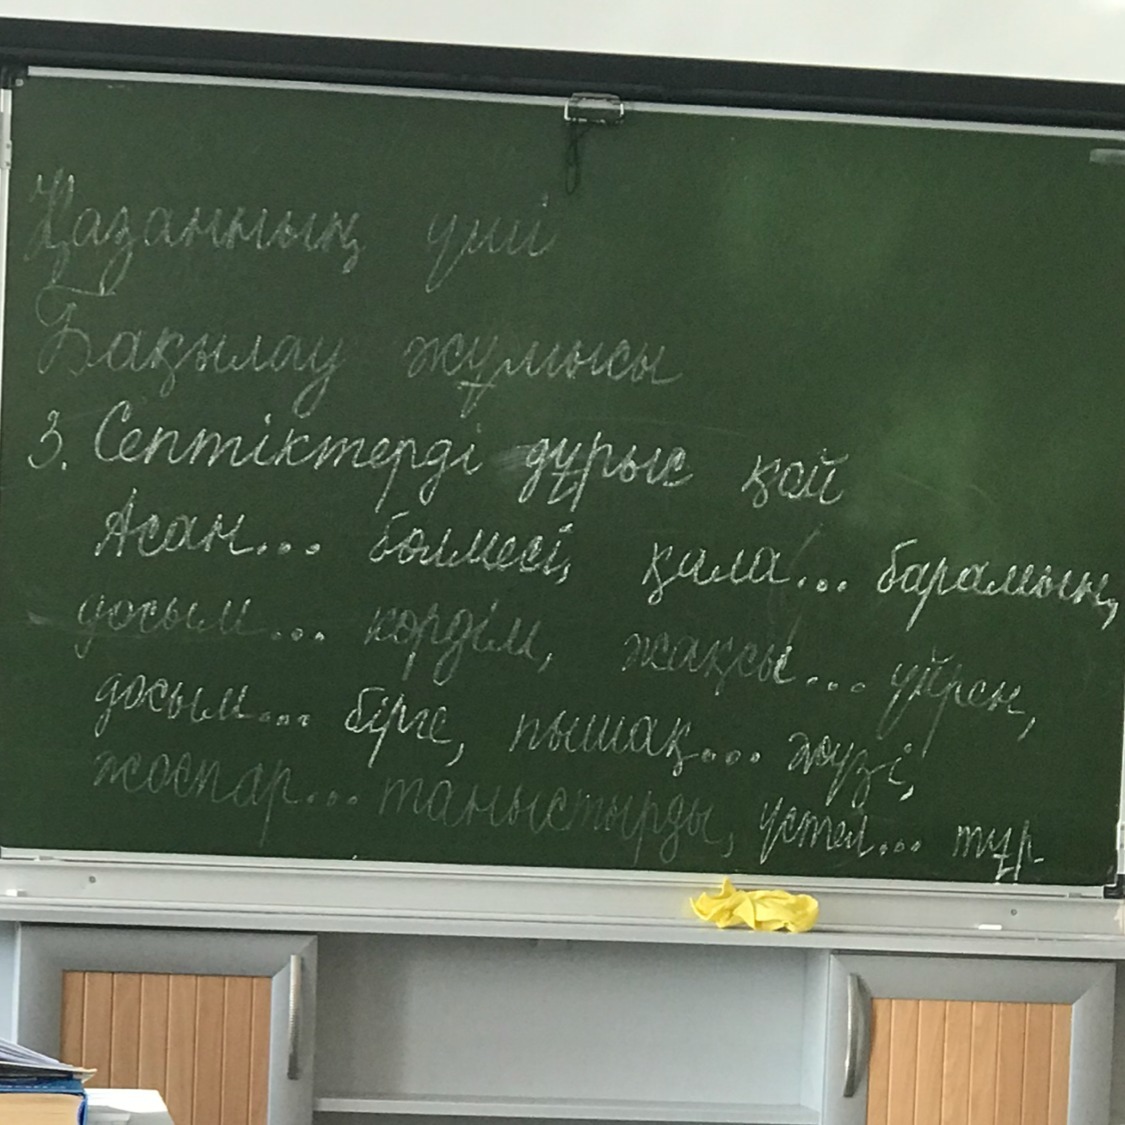 Қазанның үші
Бақылау жұмысы
3. Септіктерді дұрыс қой
Асан... бөлмесі, қала... барамын,
досым... көрдім, жақсы... үйрен,
досым... бірге, пышақ... жүзі,
жоспар... таныстырды, үстел... тұр